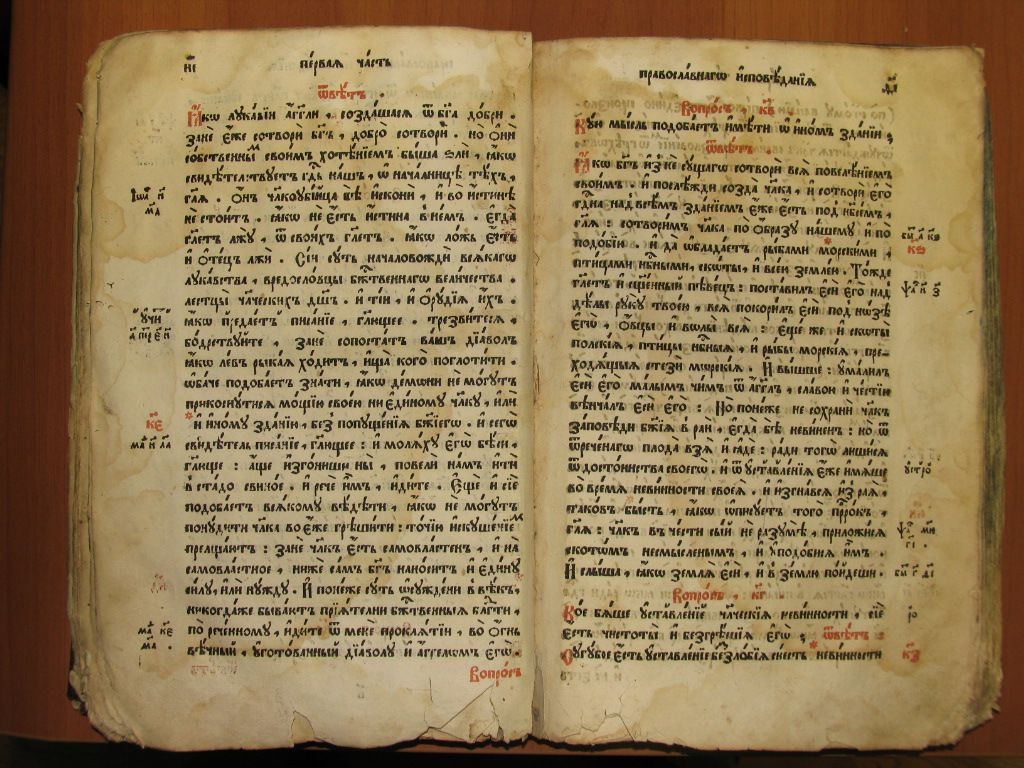 не
первая часть
ѿвѣтъ .
Ꙗ҆́кѡ лꙋка́вїи а҆́гг҃ли , созда́шасѧ ѿ бг҃а добри .
занѐ є҆́же сотворѝ бг҃ъ , добро̀ сотворѝ . но ѻ҆нѝ
со́бственныⷨ свои́мъ хотѣ́нїемъ бы́ша ѕлѝ , ꙗ҆́кѡ
свидѣ́телствꙋетъ гдⷭ҇ь на́шъ , ѡ҆ нача́лницѣ тѣ́хъ ,
гл҃ѧ . ѻ҆́нъ чл҃коꙋбі́йца бѣ̀ и҆сконѝ , и҆ во и҆́стинѣ
не стои́тъ . ꙗ҆́кѡ не є҆́сть и҆́стина в не́мъ . є҆гда̀
гл҃етъ лжꙋ̀ , ѿ свои́хъ гл҃етъ . ꙗ҆́кѡ ло́жь є҆́сть
и҆ ѻ҆те́цъ лжѝ . Сі́и сꙋть началово́жди всѧ́кагѡ
лꙋка́вства , вредосло́вцы бж҃твеннагѡ вели́чества .
лестцы̀ чл҃ческихъ дш҃ъ . и҆ ті́и , и҆ ѻ҆рꙋ́дїѧ и҆́хъ .
ꙗ҆́кѡ предае́тъ писа́нїе , гл҃ющее . трезви́тесѧ ,
бо́дрствꙋйте , занѐ сопоста́тъ ва́шъ дїа́волъ
ꙗ҆́кѡ ле́въ рыка́ѧ хо́дитъ , и҆ща̀ кого̀ поглоти́ти .
ѻ҆ба́че подоба́етъ зна́ти , ꙗ҆́кѡ де́мони не мо́гꙋтъ
прикоснꙋ́тисѧ мо́щїю свое́ю ни є҆ди́номꙋ чл҃кꙋ , и҆лѝ
* и҆ и҆но́мꙋ зда́нїю , без̾ попꙋще́нїѧ бж҃їегѡ . и҆ сегѡ̀
свидѣ́тель писа́нїе , гл҃ющее : и҆ молѧ́хꙋ є҆гѡ̀ бѣ́си ,
гл҃юще : а҆́ще и҆зго́ниши ны̀ , повелѝ на́мъ и҆тѝ
в̾ ста́до свино́е . и҆ речѐ и҆̀мъ , и҆ди́те . Є҆ще́ и҆ сїѐ
подоба́етъ всѧ́комꙋ вѣ́дѣти , ꙗ҆́кѡ не мо́гꙋтъ
понꙋ́дити чл҃ка во є҆́же грѣши́ти : то́чїю и҆скꙋше́нїеⷨ
прельща́ютъ : занѐ чл҃къ є҆́сть самовла́стенъ , и҆ на
самовла́стное , нижѐ са́мъ бг҃ъ нано́ситъ и҆ є҆ди́нꙋ
си́лꙋ , и҆лѝ нꙋ́ждꙋ . И҆ поне́же сꙋть ѡ҆сꙋжде́ни в̾ вѣ́къ ,
никогда́же быва́ютъ прїѧ́телни бж҃твенныѧ блⷢ҇ти ,
по рече́нномꙋ , и҆ди́те ѿ менѐ проклѧ́тїи , во ѻ҆́гнь
вѣ́чный , ᲂу҆гото́ванный дїа́волꙋ и҆ а҆́ггелѡмъ є҆гѡ̀ .
Вопро́съ
Їѡⷩ҇ и҃
ма
а҃ пе́т є҃ и҃
к҃є
маⷮ и҃ ла
маⷮ к҃є
ма .
правосла́внагѡ и҆сповѣ́данїѧ
Вопро́съ , к҃в .
Кꙋ́ю мы́сль подоба́етъ и҆мѣ́ти ѡ҆ и҆но́мъ зда́нїи ;
ѿвѣ́тъ .
Ꙗ҆́кѡ бг҃ъ и҆з̾ не сꙋ́щагѡ сотворѝ всѧ̀ повелѣ́нїемъ
свои́мъ . и҆ послѣ́жди созда̀ чл҃ка , и҆ сотворѝ є҆го̀
гдⷭ҇на над̾ всѣ́мъ зда́нїемъ є҆́же є҆́сть под̾ нб҃семъ ,
гл҃ѧ : сотвори́мъ чл҃ка по ѻ҆́бразꙋ на́шемꙋ и҆ по
подо́бїю . и҆ да ѡ҆блада́етъ ры́бами морски́ми ,
пти́цами нбⷭ҇ными , ско́ты , и҆ все́ю земле́ю . То́жде
гл҃етъ и҆ сщ҃е́нный пѣве́цъ : поста́вилъ є҆сѝ є҆го̀ над̾
дѣ́лы рꙋкꙋ̀ твое́ю , всѧ̀ покори́лъ є҆сѝ под̾ но́зѣ
є҆гѡ̀ , ѻ҆́вцы и҆ волы̀ всѧ̀ : є҆ще́ же и҆ скоты̀
полскі́ѧ , пти́цы нбⷭ҇ныѧ , и҆ ры́бы морскі́ѧ , пре-
ходѧ́щыѧ стези̑ мѡрскі́ѧ . И҆ вы́шше : ᲂу҆ма́лилъ
є҆сѝ є҆го̀ ма́лымъ чи́мъ ѿ а҆́гг҃лъ , сла́вою и҆ че́стїю
вѣнча́лъ є҆сѝ є҆го̀ : Но̀ поне́же не сохранѝ чл҃къ
за́повѣди бж҃їѧ в̾ раѝ , є҆гда̀ бѣ̀ неви́ненъ : но ѿ
ѿрече́нагѡ плода̀ взѧ̀ и҆ ꙗ҆дѐ : ра́ди тогѡ̀ лиши́сѧ
ѿ досто́инства своегѡ̀ . и҆ ѿ ᲂу҆ставле́нїѧ є҆́же и҆мѧ́ше
во вре́мѧ неви́нности своеѧ̀ . и҆ и҆згна́всѧ и҆з̾ раѧ̀ ,
тако́въ бы́сть , ꙗ҆́кѡ ѡ҆пи́сꙋетъ того̀ прⷪ҇ро́къ ,
гл҃ѧ : чл҃къ въ че́сти сы́й не разꙋмѣ̀ , приложи́сѧ
скотѡ́мъ несмы́сленымъ , и҆ ᲂу҆подо́бисѧ и҆̀мъ .
И҆ слы́ша , ꙗ҆́кѡ землѧ̀ є҆сѝ , и҆ в̾ зе́млю по́йдеши .
Вопро́съ , к҃г .
Ко́е бѧ́ше ᲂу҆ставле́нїе чл҃ческїѧ неви́нности , сїѐ
є҆́сть чистоты̀ и҆ безгрѣ́шїѧ є҆гѡ̀ ; ѿвѣ́тъ :
Сꙋгꙋ́бое є҆́сть ᲂу҆ставле́нїе беззло́бїѧ си́есть * неви́нности
бытⷪ҇ а҃ к҃ѕ
к҃ѡ
ѱаⷧ҇ и҃ з
ѱаⷧ҇ м҃и
г҃і .
быⷮ г҃ д҃і
к҃з